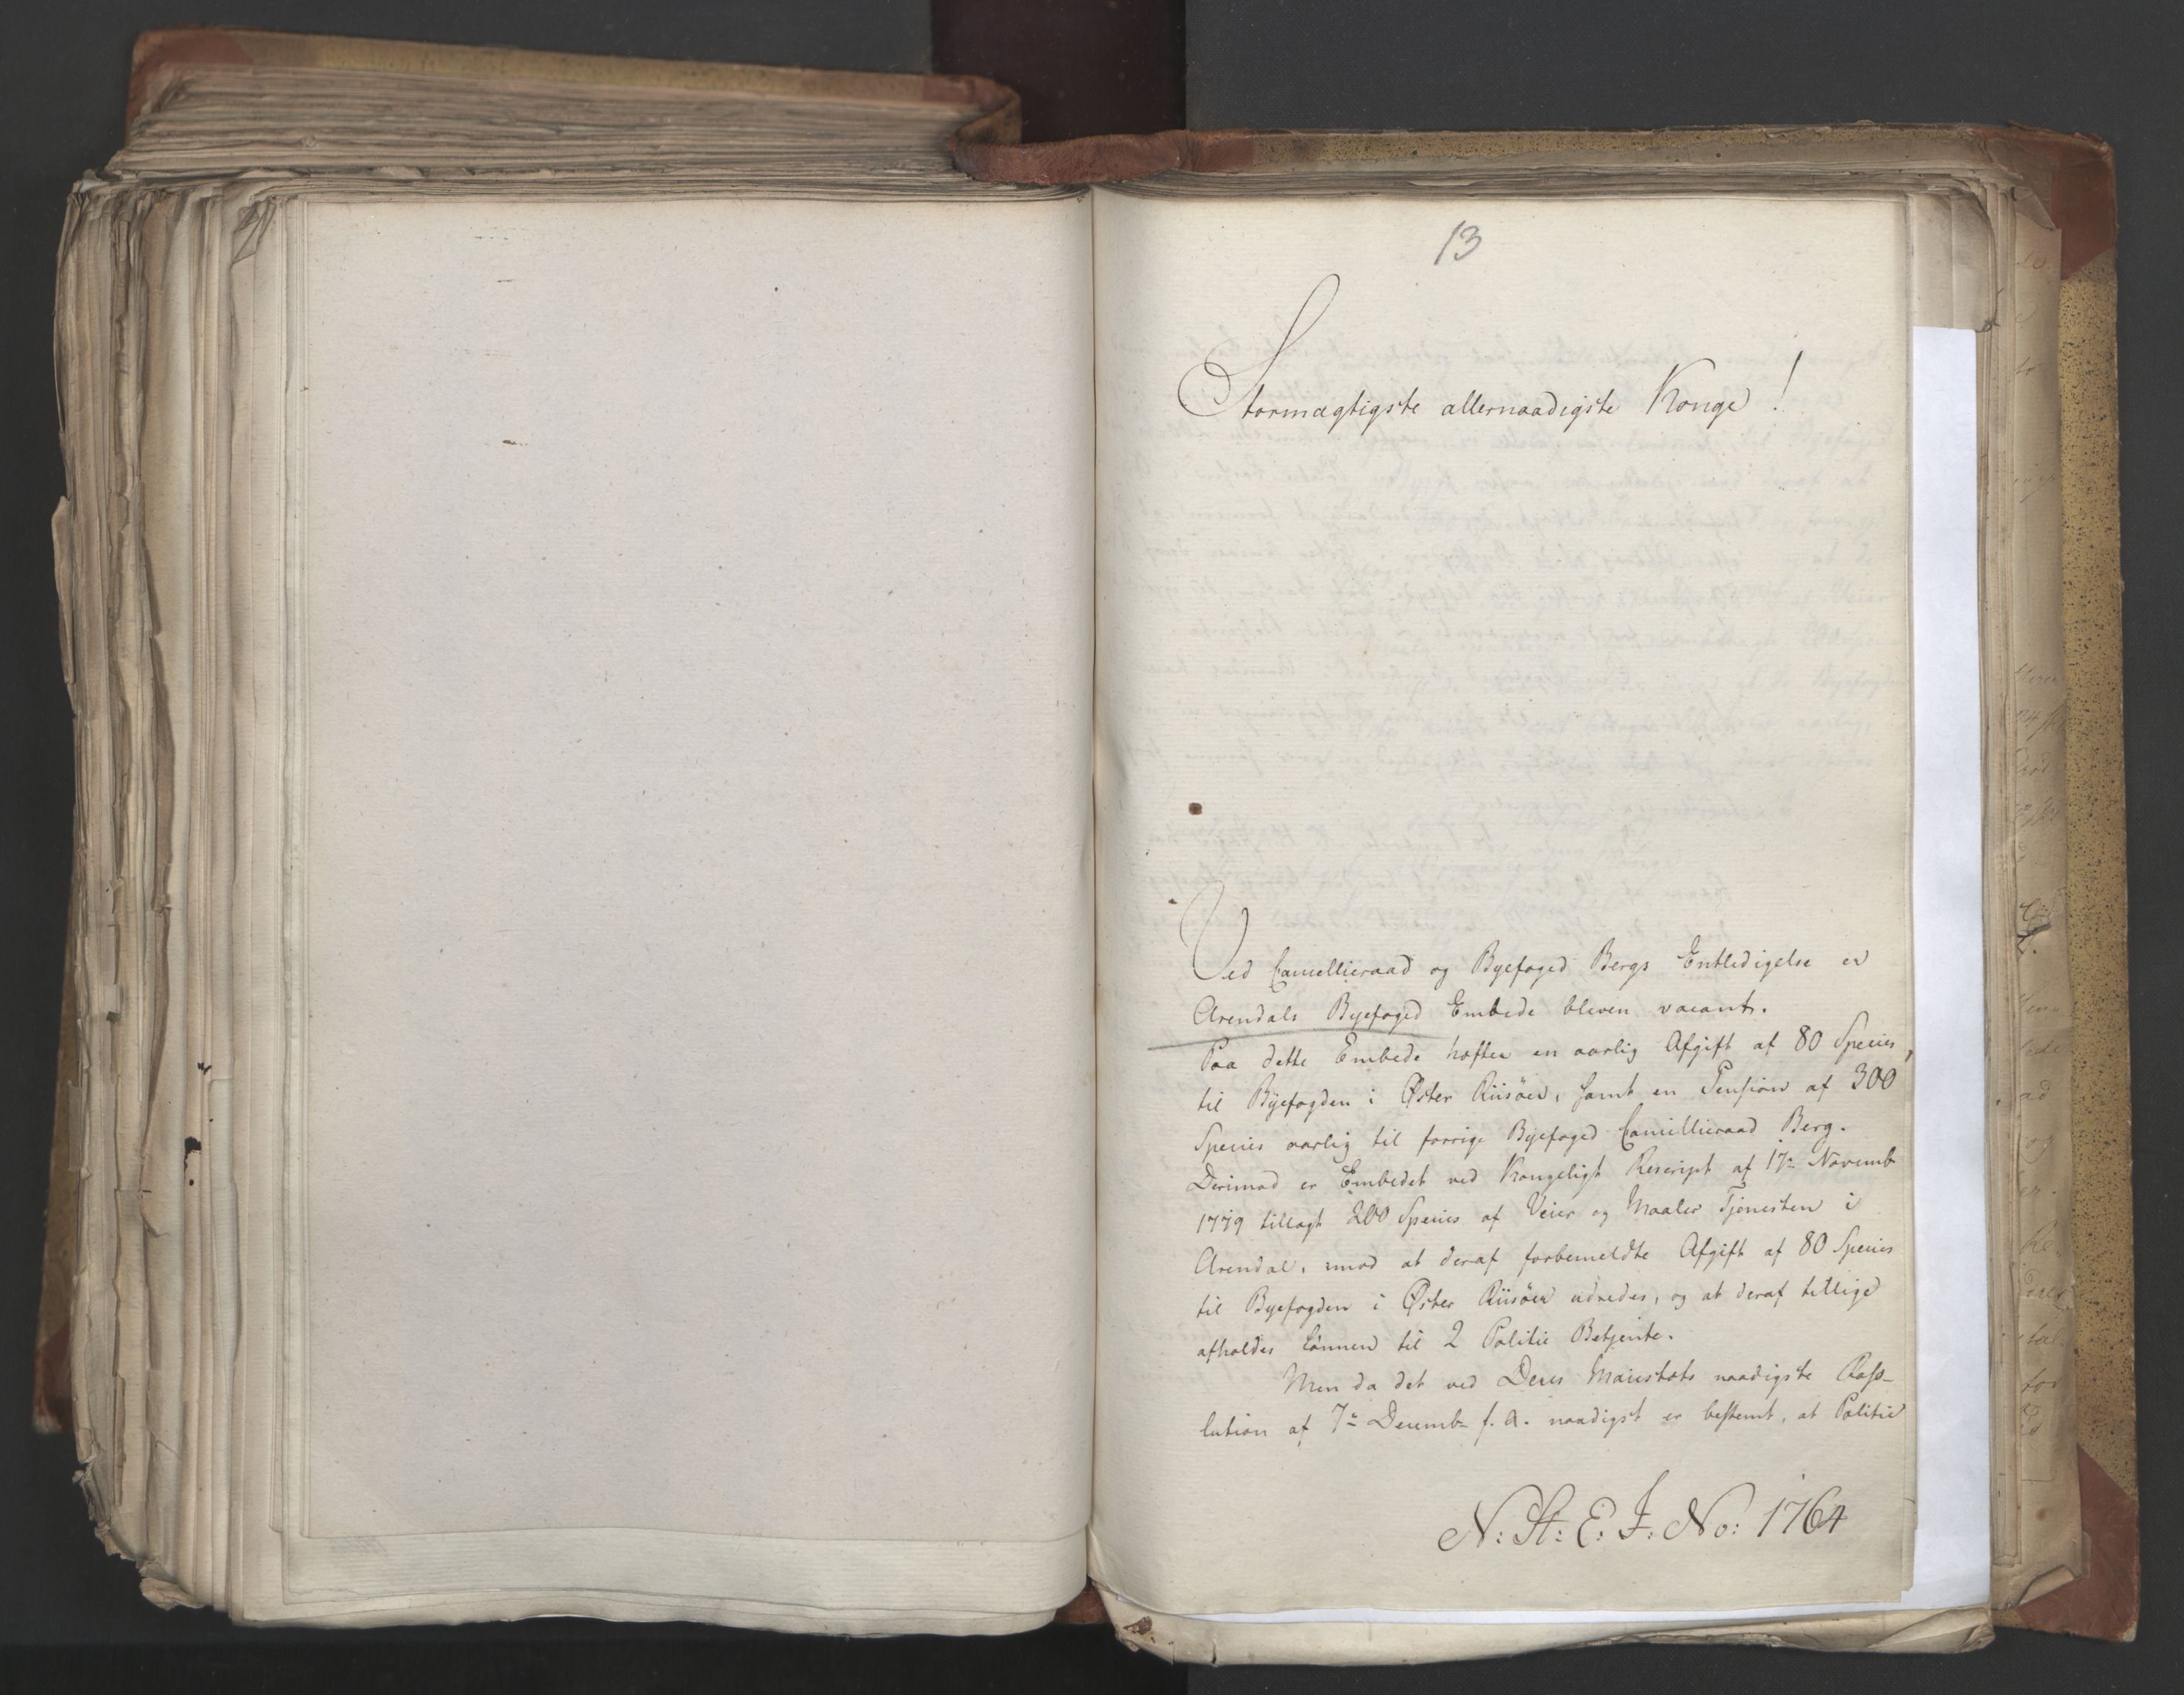 13
Stormægtigste allernaadigste Konge!
Ved Cancellieraad og Byefoged Bergs Entledigelse er
Arendals Byefoged Embede bleven vacant.
Paa dette Embede hæfter en aarlig Afgift af 80 Species,
til Byefogden i Øster Riisöer, samt en Pension af 300
Species aarlig til forrige Byefoged Cancellieraad Berg.
Derimod er Embedet ved Kongeligt Rescript af 17de Novemb
1779 tillagt 200 Species af Veier og Maaler Tjenesten i
Arendal, mod at deraf forbemeldte Afgift af 80 Species
til Byefogden i Øster Riisöer udredes, og at deraf tillige
afholdes Lönnen til 2 Politie Betjente.
Men da det ved Deres Majestæts naadigste Reso-
lution af 7de Decemb. f. A. naadigst er bestemt, at Politie
N: St: E: J: No: 1764